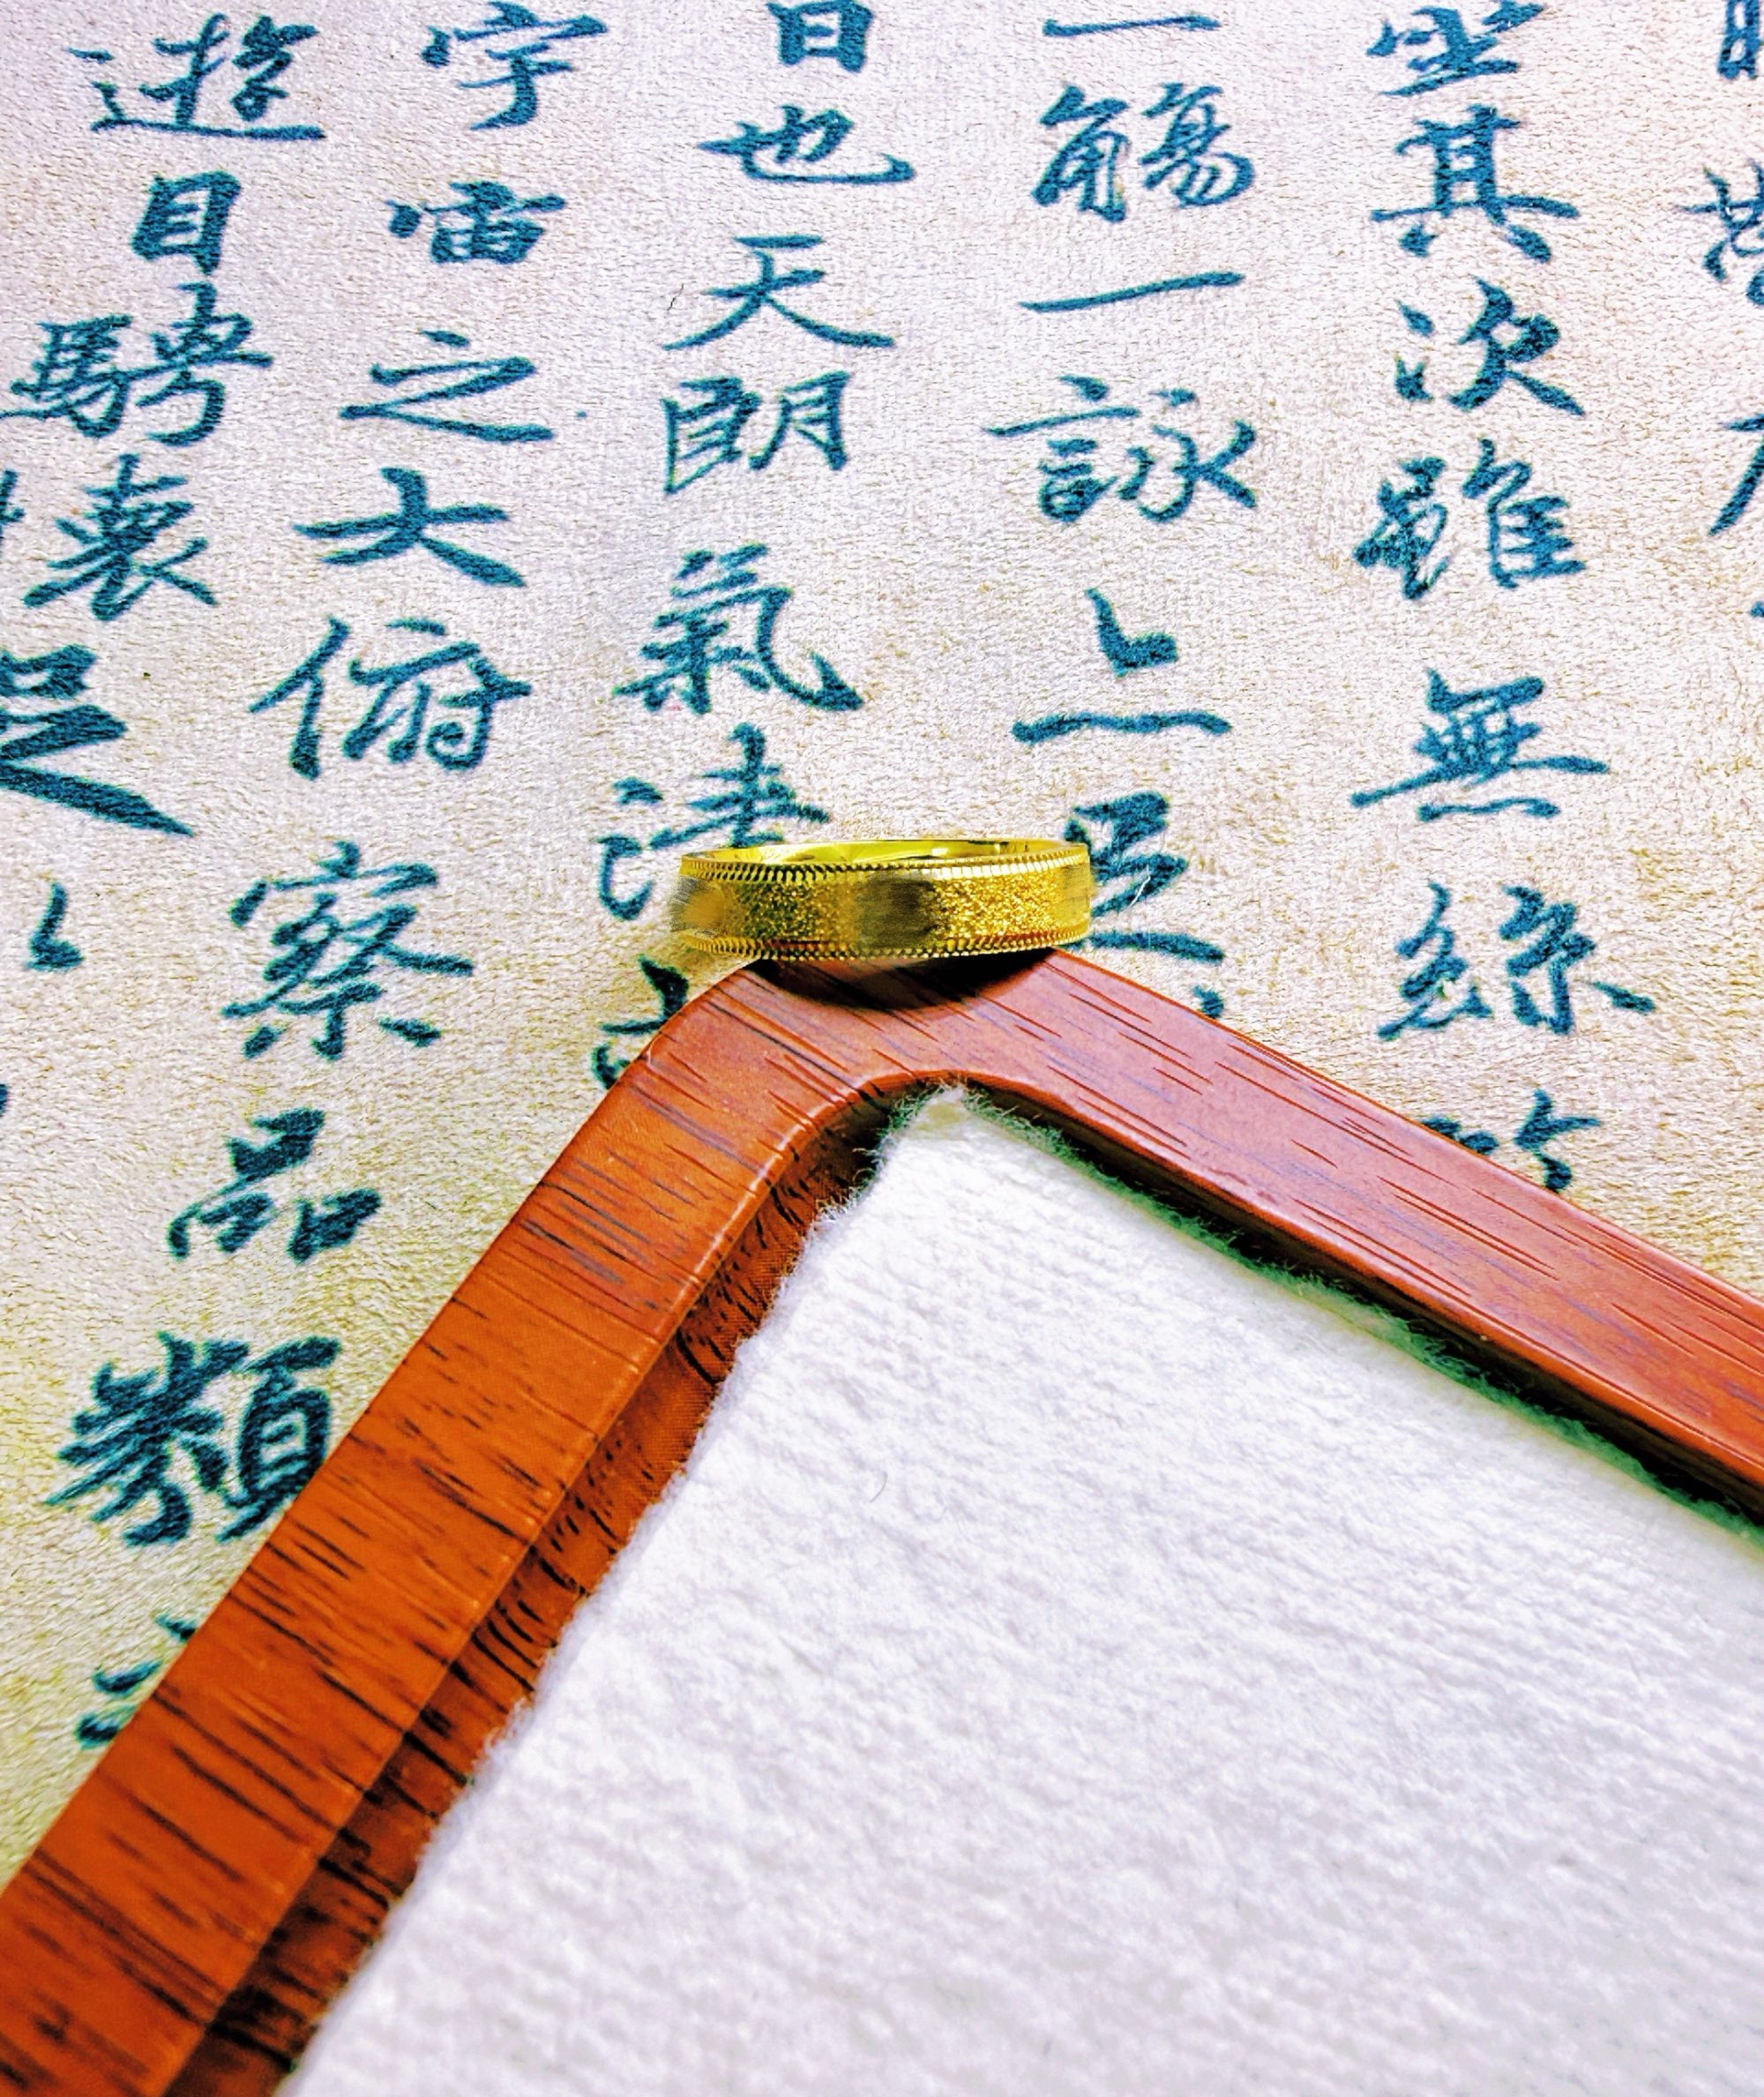 坐其次雖無絲
一觴一詠
日也天朗氣清
宇宙之大俯察品類
遊目騁懷足